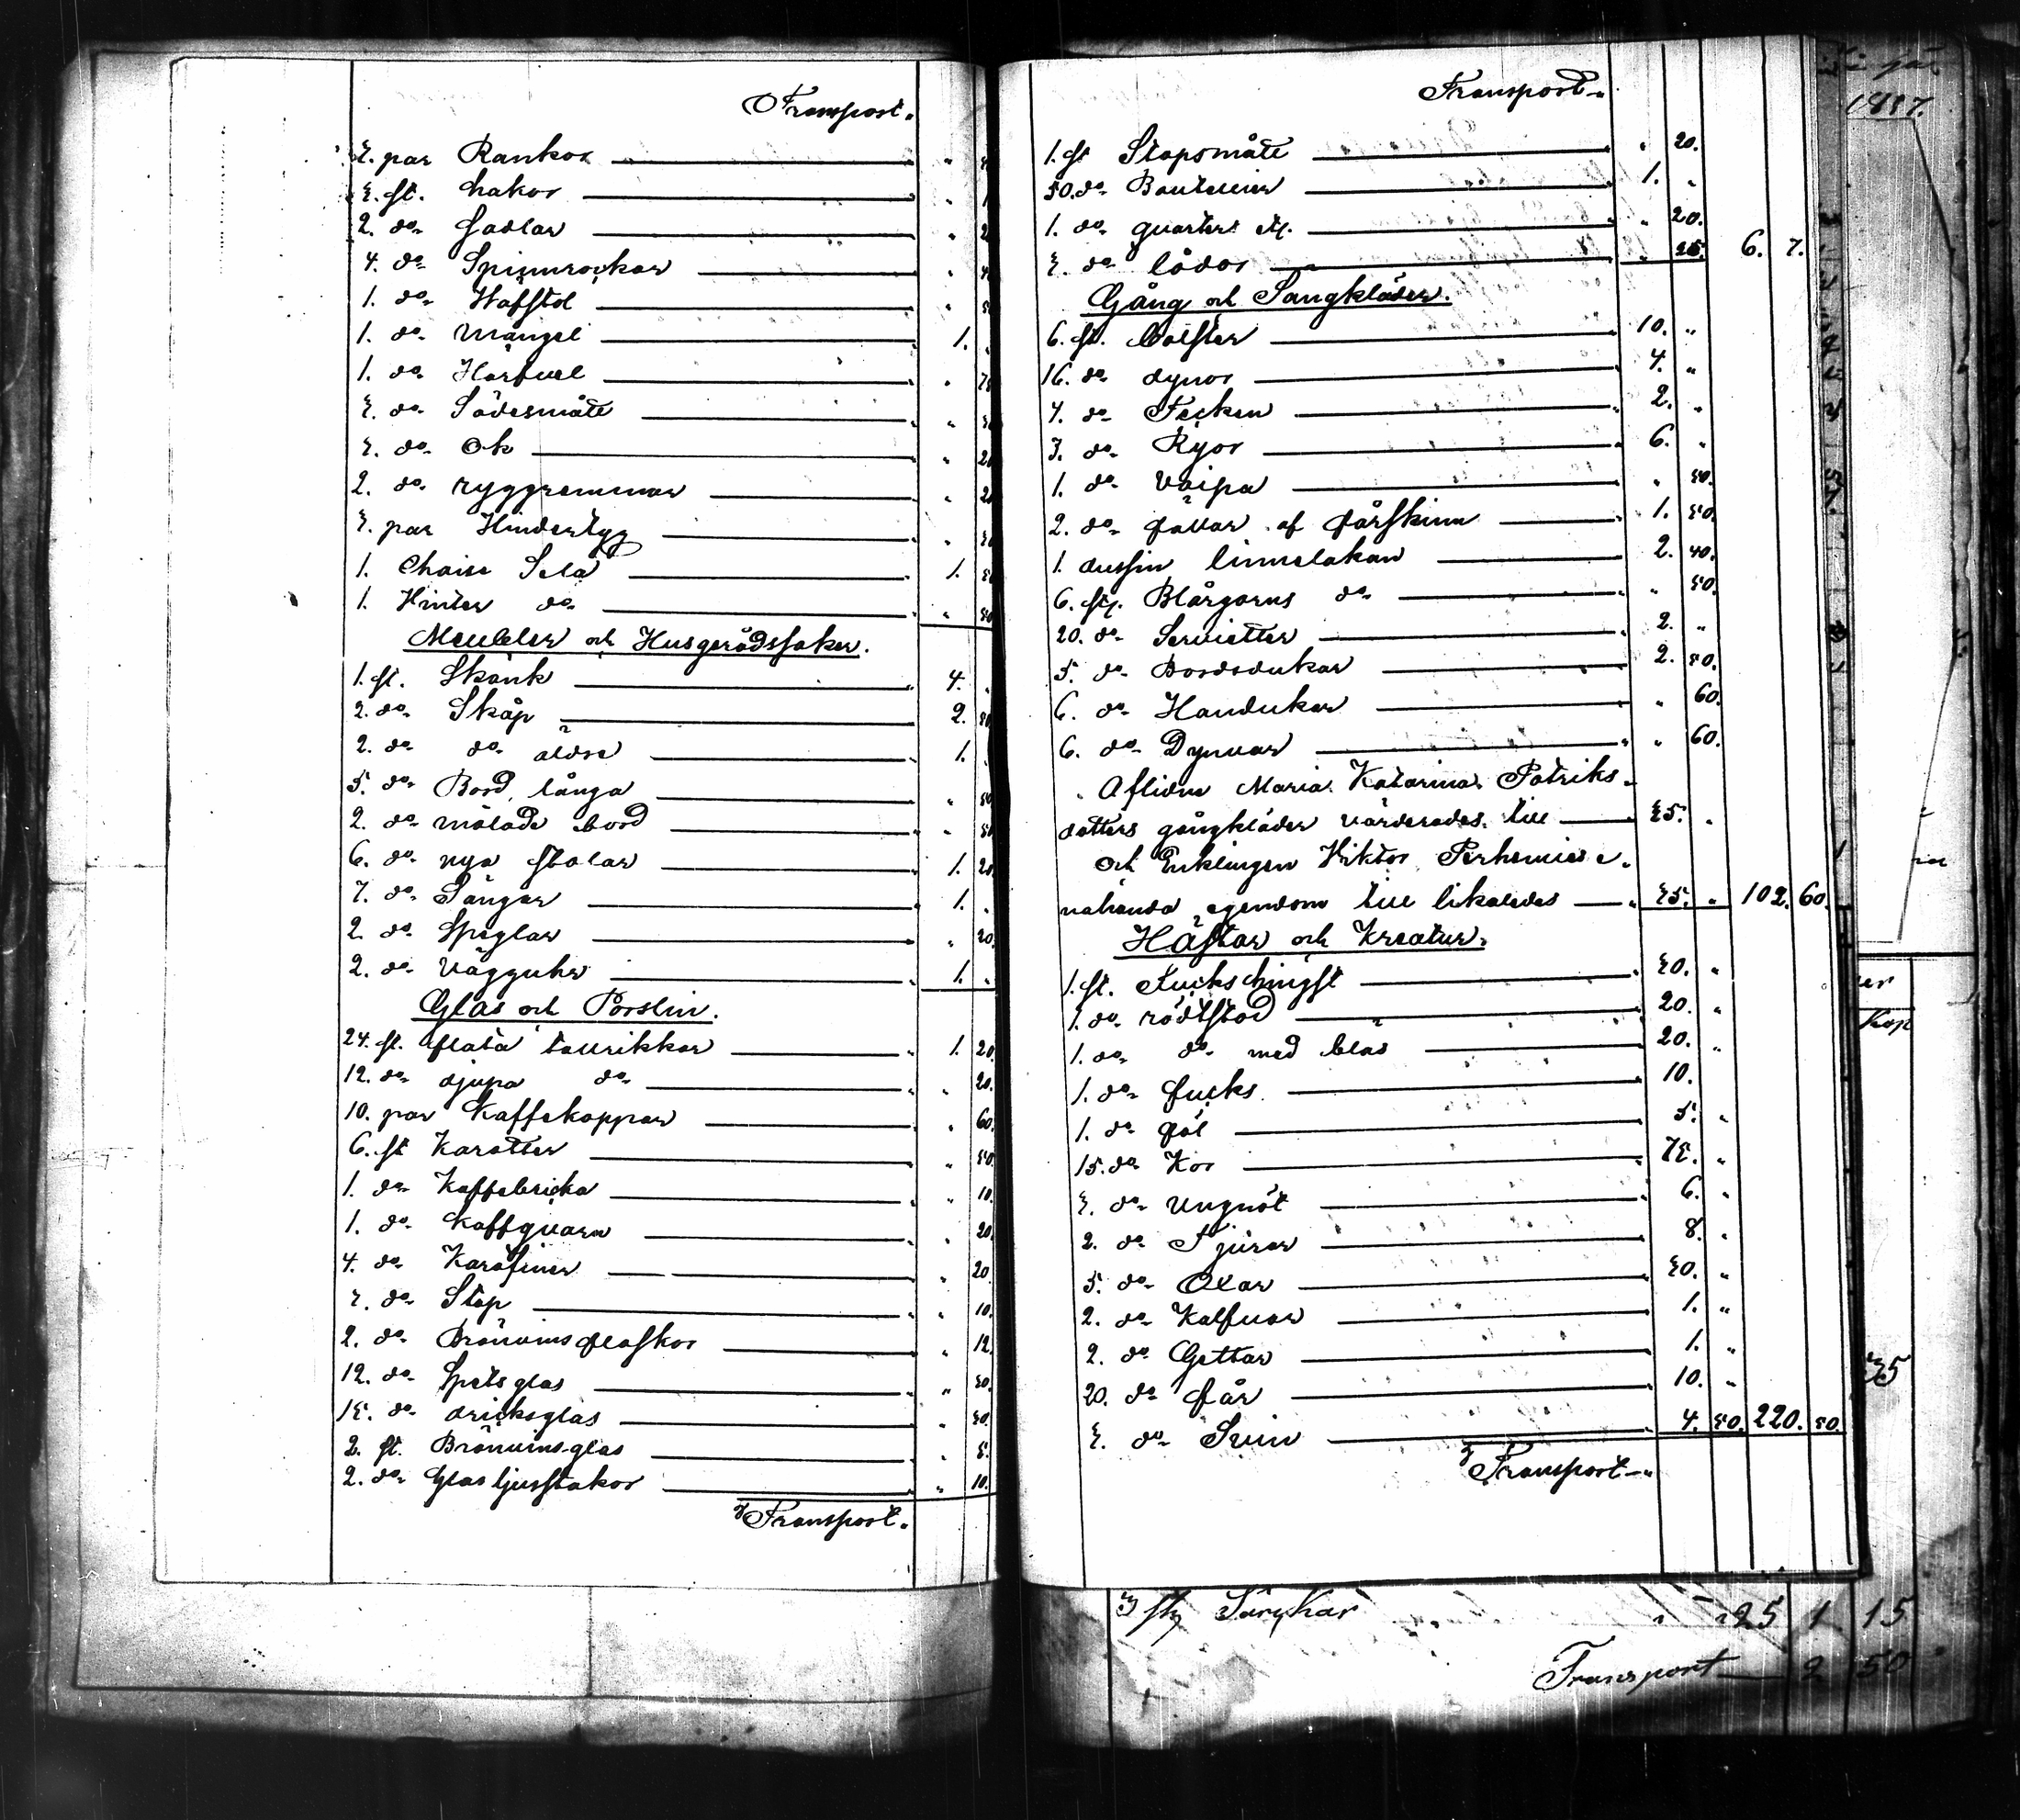 Transport.
3. par Rankor " 
3. st. hakor "
2. do Sadlar "
4. do Spinnrockar "
1. do Wäfstol "
1. do Mangel 1.
1. do Härfvel "
3. do Sädesmått "
3. do Ok " 
2. do ryggremmar "
3. par Hindertyg "
1. Chaise Sela 1.
1. Hinter do " 50
Meubler och Husgerådssaker.
1. st. Skänk 4. "
2. do Skåp 2. 50
2. do do äldre 1. "
5. do Bord, långa " 50
2. do målade bord " 50
6. do nya stolar 1. 20
7. do Sängar 1. "
2. do Speglar " 20.
2. do Vägguhr 1. "
Glas och Porslin.
24. st. flata tallrikkar 1. 20.
12. do djupa do " 20.
10. par Kaffekoppar " 60.
6. st Karotter " 50.
1. do Kaffebricka " 10.
1. do Kaffqvarn " 20.
4. do Karafiner " 20.
3. do Stop " 10.
2. do Bränvinsflaskor " 12.
12. do Spetsglas " 30.
13. do dricksglas " 30.
2. st. Bränvins-glas " 3.
2. do Glas ljusstakor " 10.
Transport.
Transport
1. st Stopsmått " 20.
30. do Bouteiller 1. "
1. do quarters st. " 20.
3. do lådor " 25. 6. 7.
Gång och Sängkläder.
6. st. bolster 10. "
16. do dynor 4. "
4. do Tecken 2. "
3. do Ryor 6. "
1. do Vaipa " 50.
2. do fällar af fårskinn 1. 50.
1. dussin linnelakan 2. 40.
6. st. Blårgarns do " 50.
20. do Servietter 2. "
5. do Bordsdukar 2. 50.
6. do Handukar " 60.
6. do Dynvar " 60.
Aflidne Maria Katarina Patriks-
dotters gångkläder värderades till 35. "
och Enklingen Viktor Perhemies e-
nahanda egendom till likaledes 35. " 102. 60.
Hästar och Kreatur.
1. st. Fuckshingst 30. "
1. do rödtstod 20. "
1. do do med bläs 20. "
1. do fucks 10.
1. do föl 5. "
15. do Kor 75. "
3. do Ungnöt 6. "
2. do Tjurar 8. "
5. do Oxar 30. "
2. do Kalfvar 1. "
2. do Gettar 1. "
20. do får 10. "
3. do Svin 4. 50. 220. 50.
Transport
1887.
Kop
35
3 st Särkar " " 25 1 15
Transport 2 50